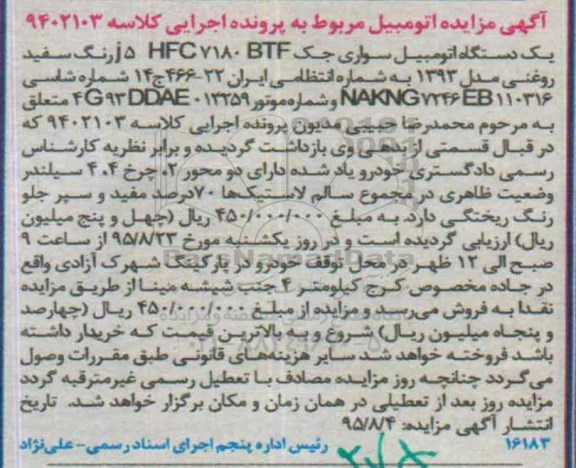 آگهی مزایده اتومبیل مربوط به پرونده اجرایی کلاسه ۹۴۰۲۱۰۳
یک دستگاه اتومبیل سواری جک HFC ۷۱۸۰ BTF j۵ رنگ سفید
روغنی مدل ۱۳۹۳ به شماره انتظامی ایران ۲۲-۴۶۶ج۱۴ شماره شاسی
NAKNG۷۲۴۶EB۱۱۰۳۱۶ و شماره موتور ۴G۹۳DDAE۰۱۳۲۵۹ متعلق
به مرحوم محمدرضا حبیبی مدیون پرونده اجرایی کلاسه ۹۴۰۲۱۰۳ که
در قبال قسمتی از بدهی وی بازداشت گردیده و برابر نظریه کارشناس
رسمی دادگستری خودرو یاد شده دارای دو محور ۲، چرخ ۴، ۴ سیلندر
وضعیت ظاهری در مجموع سالم لاستیک‌ها ۷۰درصد مفید و سپر جلو
رنگ ریختگی دارد. به مبلغ ۴۵۰/۰۰۰/۰۰۰ ریال (چهل و پنج میلیون
ریال) ارزیابی گردیده است و در روز یکشنبه مورخ ۹۵/۸/۲۳ از ساعت ۹
صبح الی ۱۲ ظهر در محل توقف خودرو در پارکینگ شهرک آزادی واقع
در جاده مخصوص کرج کیلومتر ۴ جنب شیشه مینا از طریق مزایده
نقدا به فروش می‌رسد و مزایده از مبلغ ۴۵۰/۰۰۰/۰۰۰ ریال (چهارصد
و پنجاه میلیون ریال) شروع و به بالاترین قیمت که خریدار داشته
باشد فروخته خواهد شد سایر هزینه‌های قانونی طبق مقررات وصول
می‌گردد چنانچه روز مزایده مصادف با تعطیل رسمی غیرمترقبه گردد
مزایده روز بعد از تعطیلی در همان زمان و مکان برگزار خواهد شد. تاریخ
انتشار آگهی مزایده: ۹۵/۸/۴
۱۶۱۸۳ رئیس اداره پنجم اجرای اسناد رسمی-علی‌نژاد